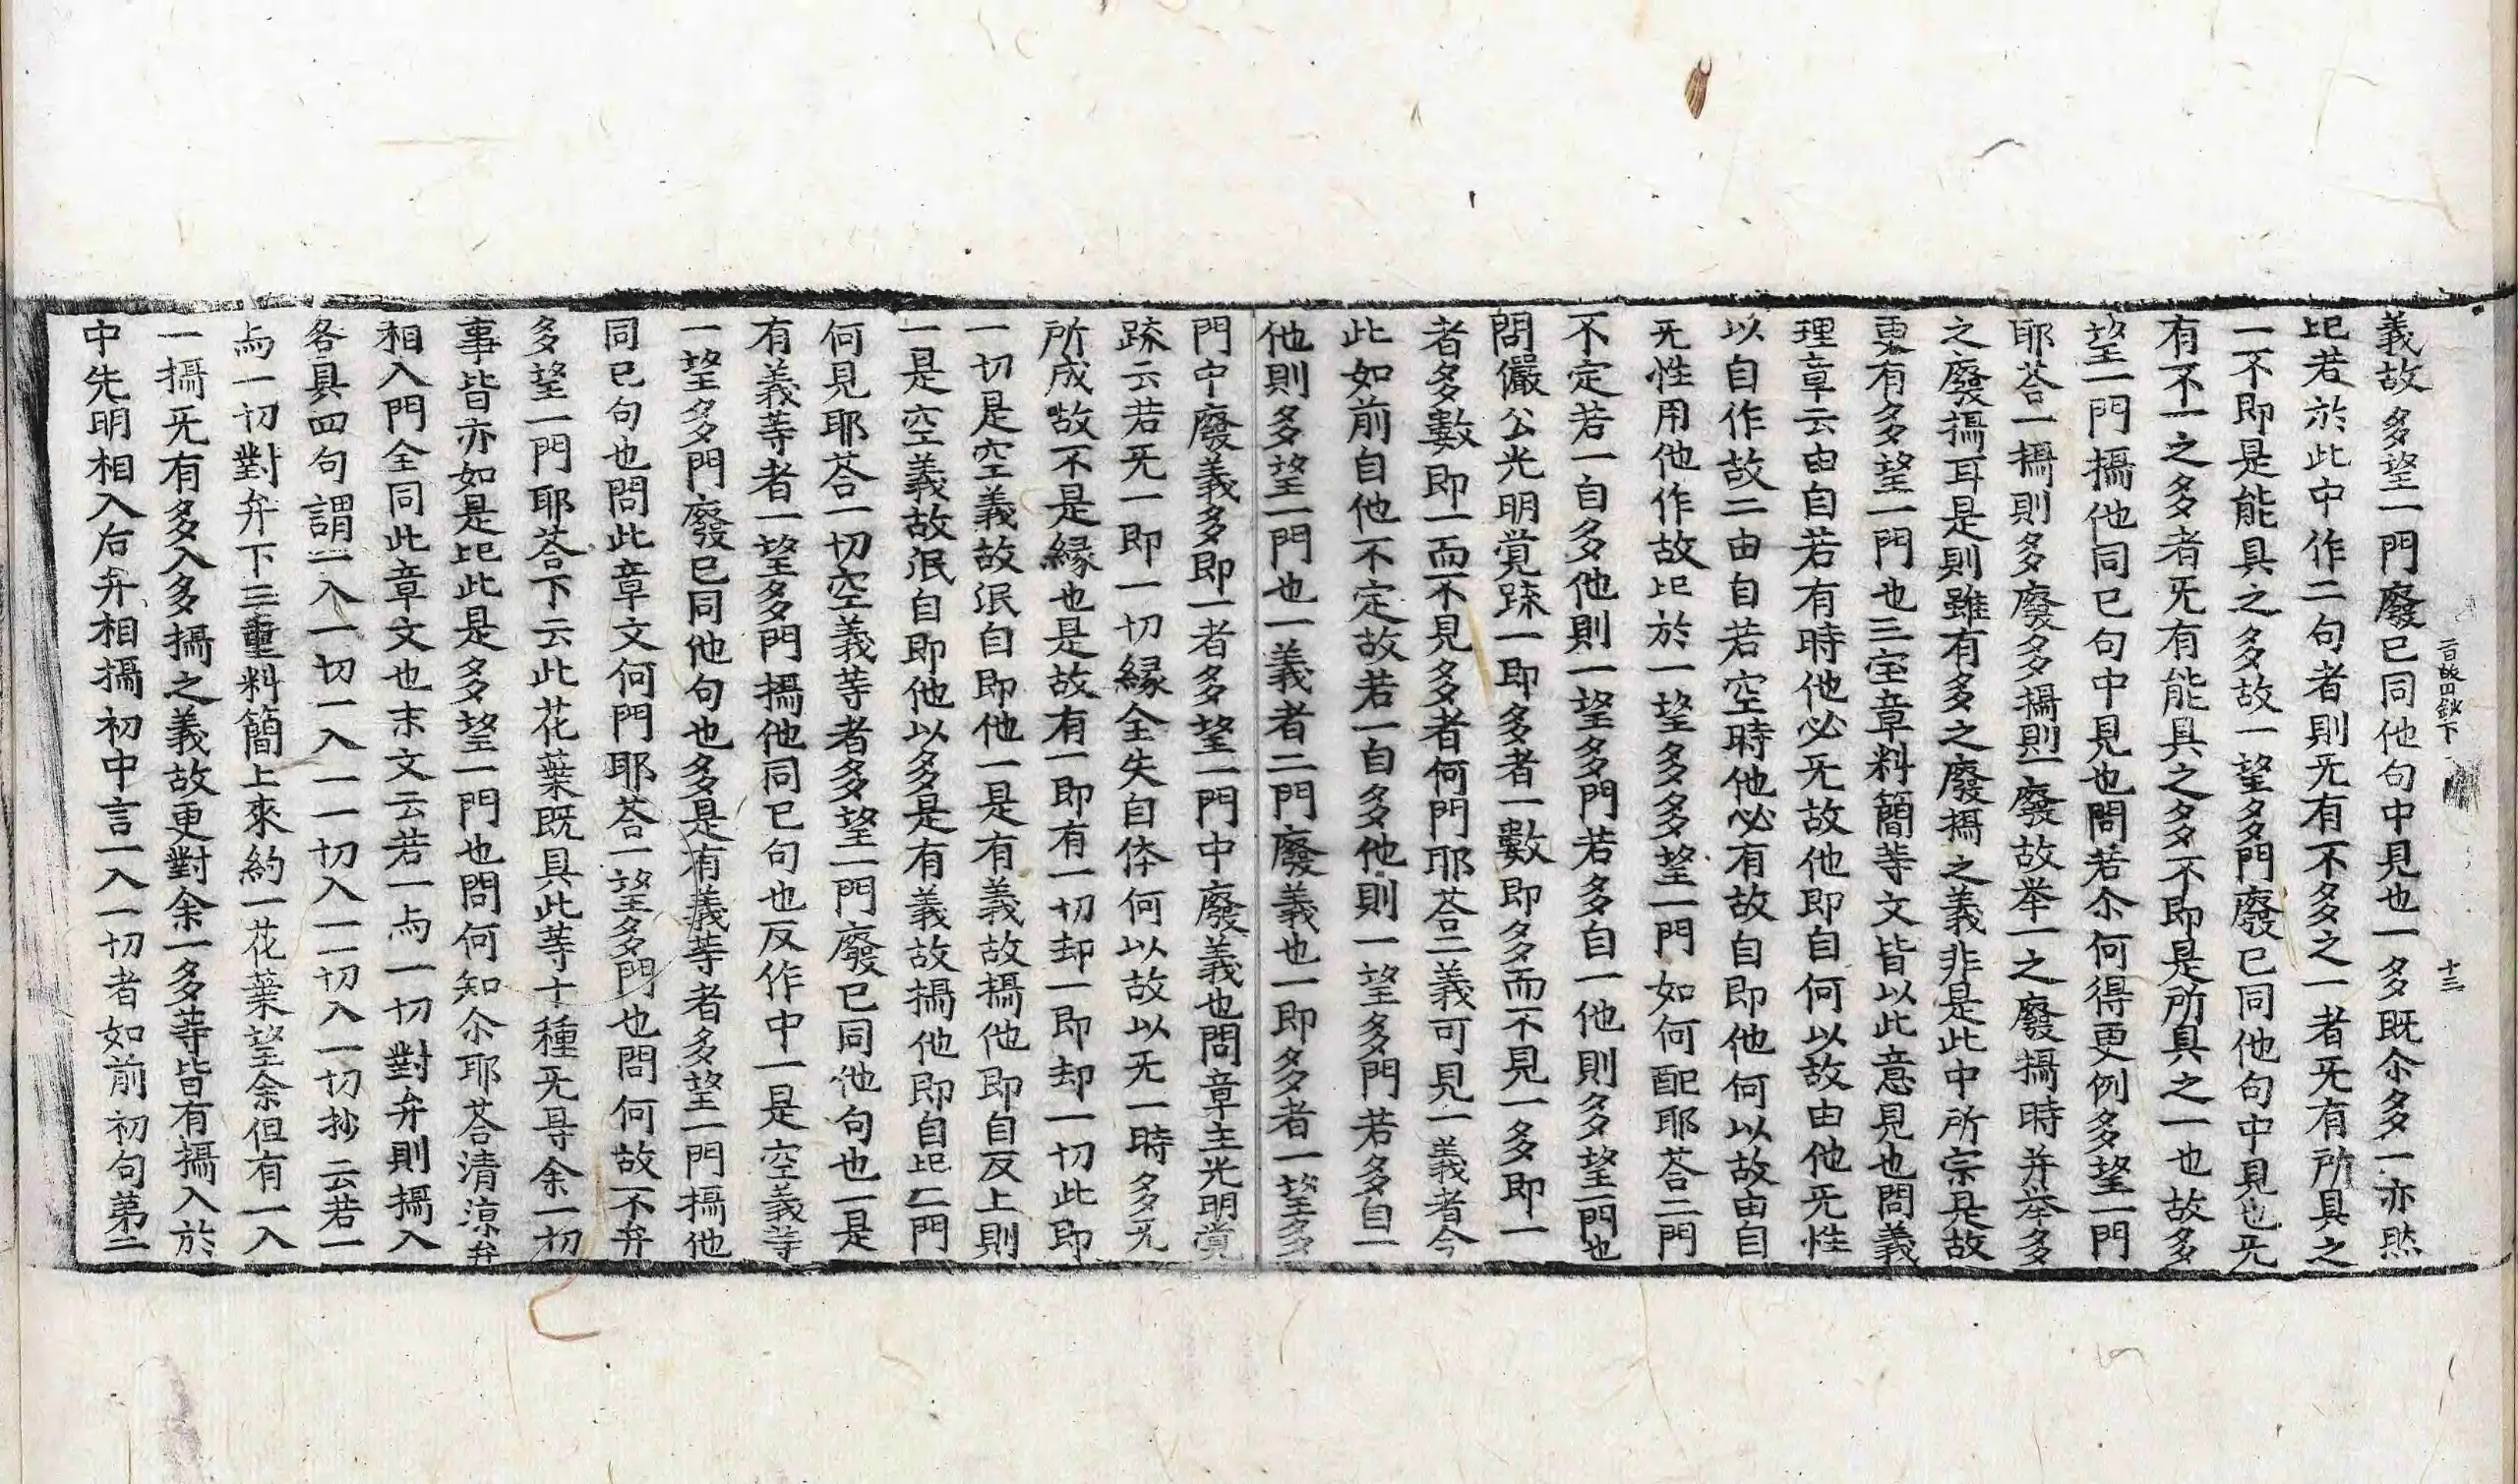 義故多望一門廢己同他句中見也一多既尒多一亦然
比若於此中作二句者則旡有不多之一者旡有所具之
一不即是能具之多故一望多門廢己同他句中見也旡
有不一之多者旡有能具之多不即是所具之一也故多
望一門攝他同己句中見也問若尒何得更例多望一門
耶荅一攝則多廢多攝則一廢故举一之廢攝時并举多
之廢攝耳是則雖有多之廢攝之義非是此中所宗是故
更有多望一門也三宝章料簡等文皆以此意見也問義
理章云由自若有時他必旡故他即自何以故由他旡性
以自作故二由自若空時他必有故自即他何以故由自
旡性用他作故比於一望多多望一門如何配耶荅二門
不定若一自多他則一望多門若多自一他則多望一門也
問儼公光明覚䟽一即多者一數即多而不見一多即一
者多數即一而不見多者何門耶荅二義可見一義者今
此如前自他不定故若一自多他則一望多門若多自一
他則多望一門也一義者二門廢義也一即多者一望多
門中廢義多即一者多望一門中廢義也問章主光明覚
䟽云若旡一即一切縁全失自体何以故以旡一時多旡
所成故不是縁也是故有一即有一切却一即却一切此即
一切是空義故泯自即他一是有義故攝他即自反上則
一是空義故泯自即他以多是有義故攝他即自比二門
何見耶荅一切空義等者多望一門廢己同他句也一是
有義等者一望多門攝他同己句也反作中一是空義等
一望多門廢己同他句也多是有義等者多望一門攝他
同己句也問此章文何門耶荅一望多門也問何故不弁
多望一門耶荅下云此花葉既具此等十種旡㝵余一切
事皆亦如是比此是多望一門也問何知尒耶荅清涼弁
相入門全同此章文也末文云若一与一切對弁則攝入
各具四句謂一入一切一入一一切入一一切入一切抄云若一
与一切對弁下三重料簡上來約一花葉望余但有一入
一攝旡有多入多攝之義故更對余一多等皆有攝入於
中先明相入后弁相攝初中言一入一切者如前初句第二
十三